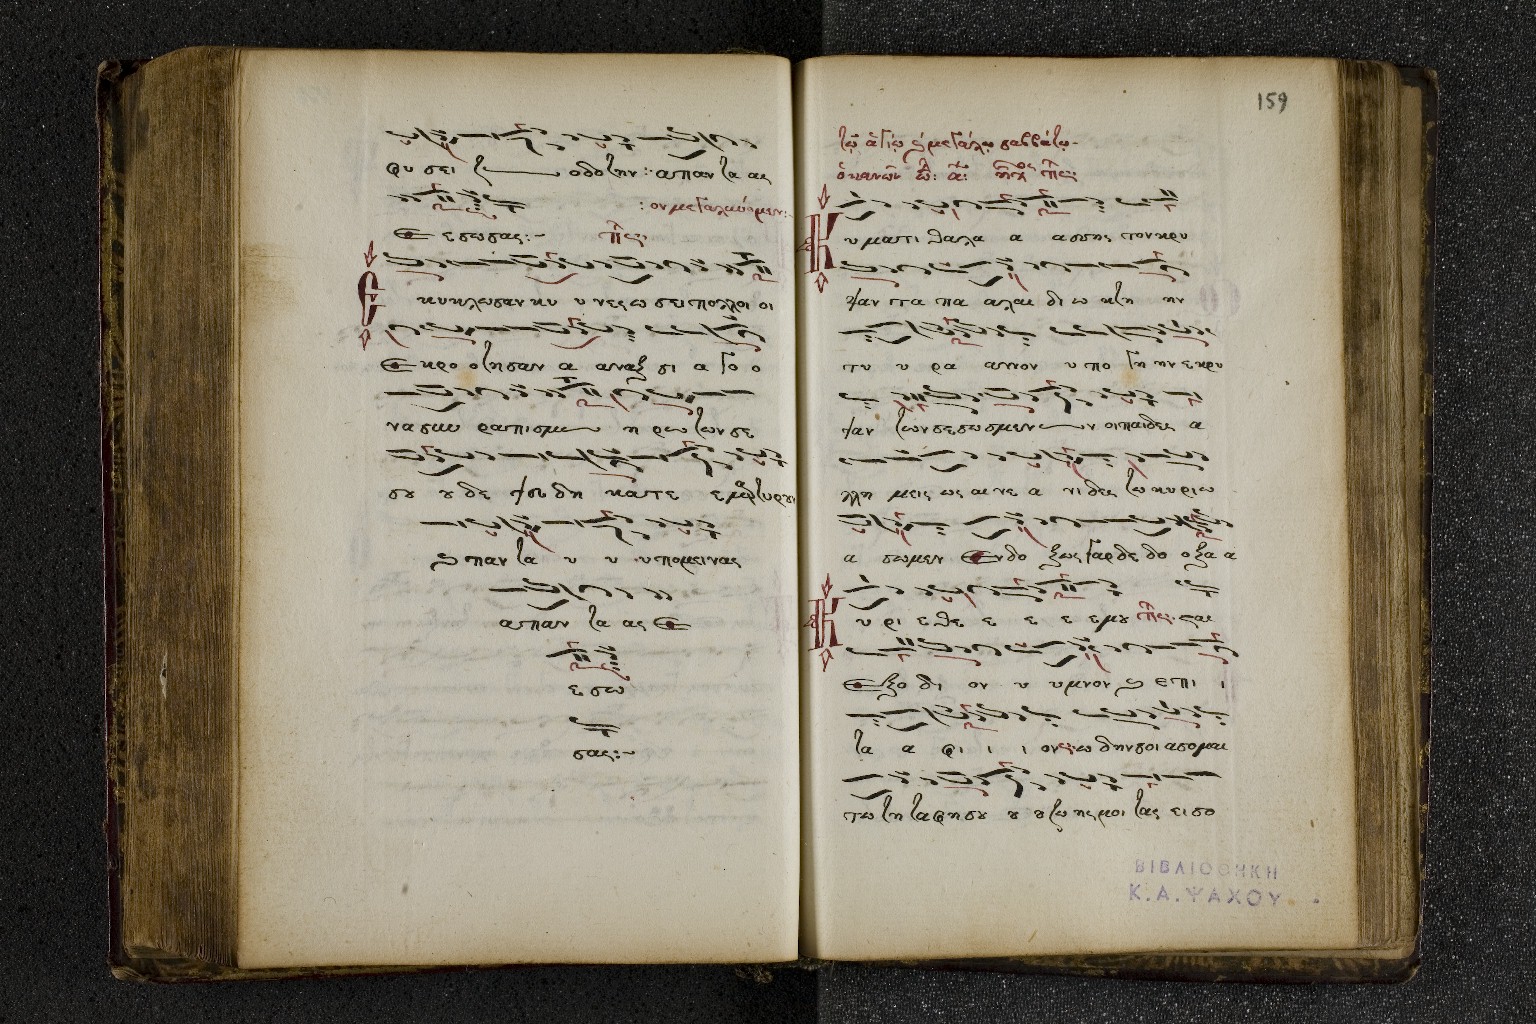 φυ σει τ οδοτην: απαντα ας
: ον μεγαλύνομεν:
Ε ε σωσας:~
Ε κυκλωσαν κυ υ νες ω σει πολλοι οι
Ε κρο οτησαν α αναξ σι α γο ο
να σου ραπισμω η ρω των σε
σου ου δε ψευδη κατε ε μαρτυρουν
ς παν τα υ υ υπομεινας
απαν τα ας Ε
ε σω
σας:~
159
τῷ ἁγίῳ ϗ μεγάλῳ σαββάτῳ
ὁ κανὼν
Κ υματι θαλα α ασσης τον κρυ
ψαντα πα αλαι δι ω κτη ην
τυ υ ρα αννον υπο γη ην εκρυ
ψαν των σεσωσμενων οι παιδες α
λλη μεις ως αι νε α νιδες τω κυριω
α σωμεν Ενδο ξως γαρ δε δο οξα α
Κ υ ρι ε θε ε ε ε μου
Εξο δι ον υ υμνον ϗ επι ι
τα α φι ι ι ον ωδην σοι ασομαι
τω τη ταφη σου ου ζωης μοι τας εισο
ΒΙΒΛΙΟΘΗΚΗ
Κ.Α.ΨΑΧΟΥ